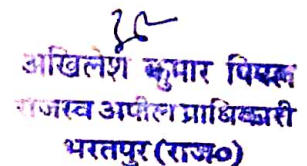 अखिलेश कुमार पिप्पल
राजस्व अपील प्राधिकारी
भरतपुर (राज०)